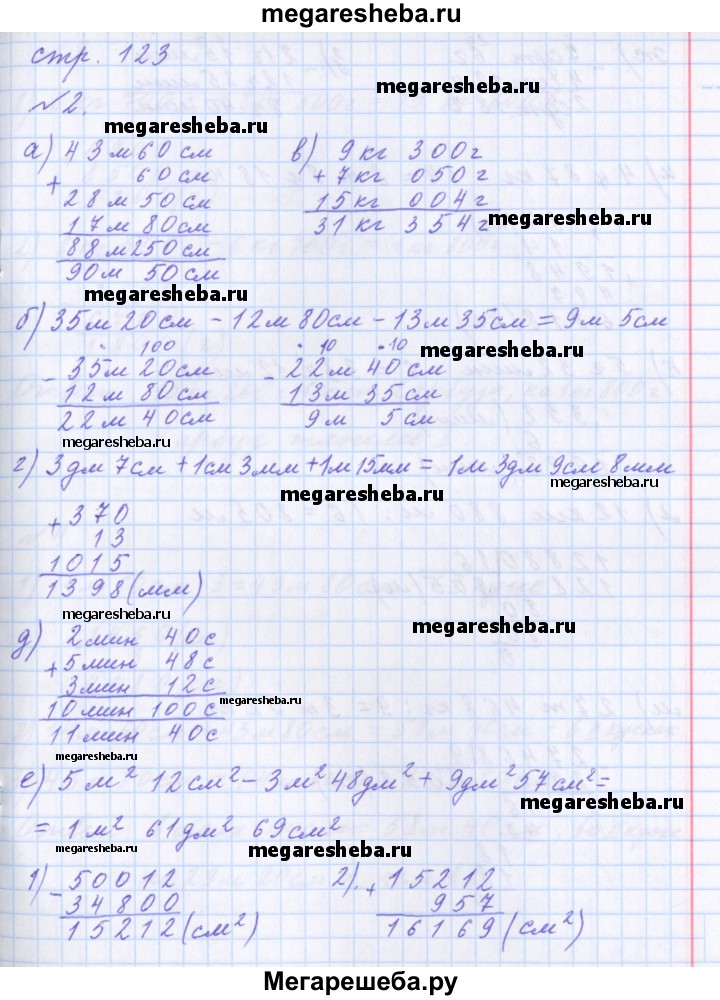 megaresheba.ru
стр. 123
megaresheba.ru
№2.
megaresheba.ru
а) 43м60см
+ 60см
28м 50см
17м 80см
88м250см
90м 50см
в) 9кг 300г
+7кг 050г
15кг 004г
31кг 354г
megaresheba.ru
megaresheba.ru
б) 35м 20см - 12м 80см - 13м 35см = 9м 5см
megaresheba.ru
. 100
- 35м 20см
12м 80см
22м 40см
. 10 .10
- 22м 40см
13м 35см
9м 5см
megaresheba.ru
г) 3дм 7см + 1см 3мм + 1м 15мм = 1м 3дм 9см 8мм
megaresheba.ru
megaresheba.ru
+ 370
13
1015
1398(мм)
megaresheba.ru
megaresheba.ru
д) 2мин 40с
+ 5мин 48с
3мин 12с
10мин 100с
11мин 40с
megaresheba.ru
е) 5м² 12см² - 3м² 48дм² + 9дм² 57см² =
megaresheba.ru
= 1м² 61дм² 69см²
megaresheba.ru
megaresheba.ru
1) - 50012
34800
15212(см²)
2). + 15212
957
16169(см²)
Мегарешеба.ру